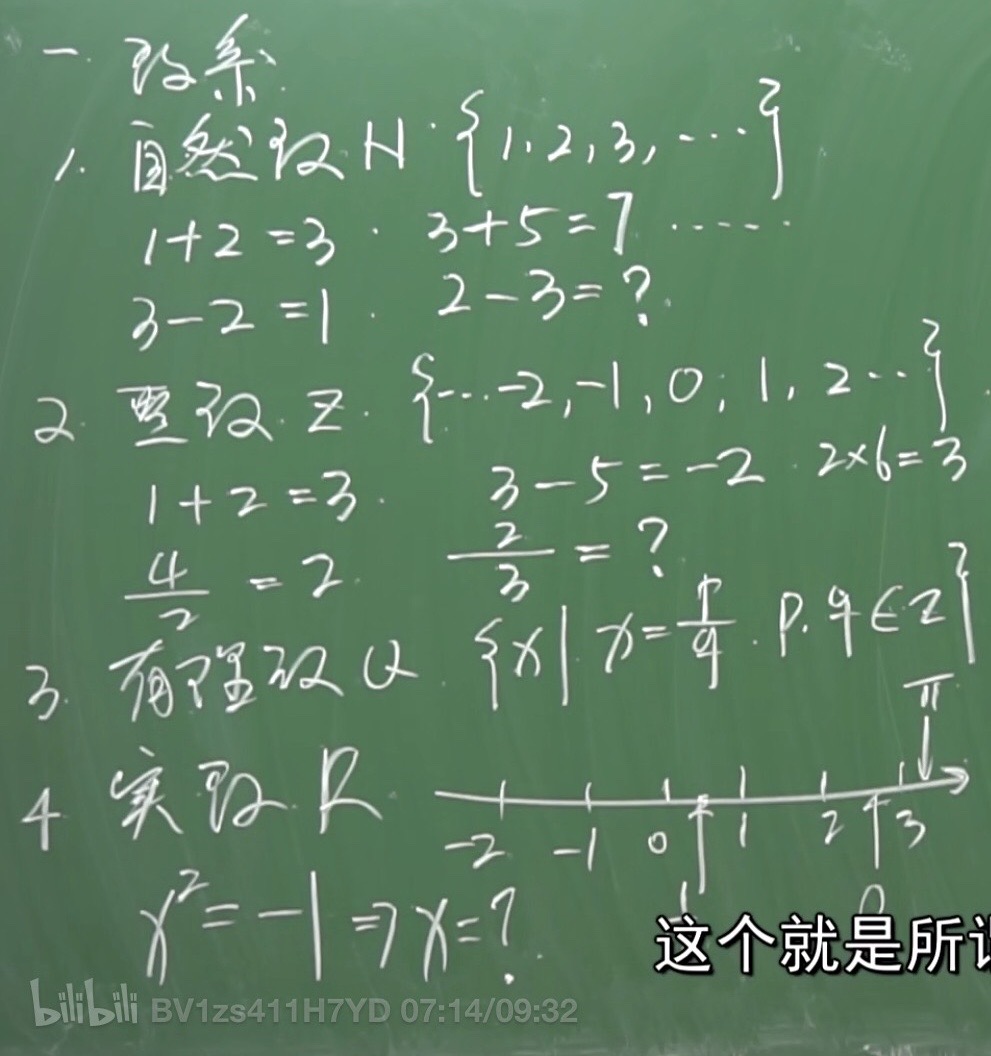 一. 数系
1. 自然数 N. {1, 2, 3, ...}
1+2=3. 3+5=7 ......
3-2=1. 2-3=?
2. 整数 Z. {...-2, -1, 0, 1, 2...}.
1+2=3. 3-5=-2. 2×6=3
4/2=2. 2/3=?
3. 有理数 Q. {x| x=p/q. p.q∈Z}
π
4. 实数 R.
-2 -1 0 1 2 3
x²=-1⇒x=?
这个就是所
bilibili BV1zs411H7YD 07:14/09:32